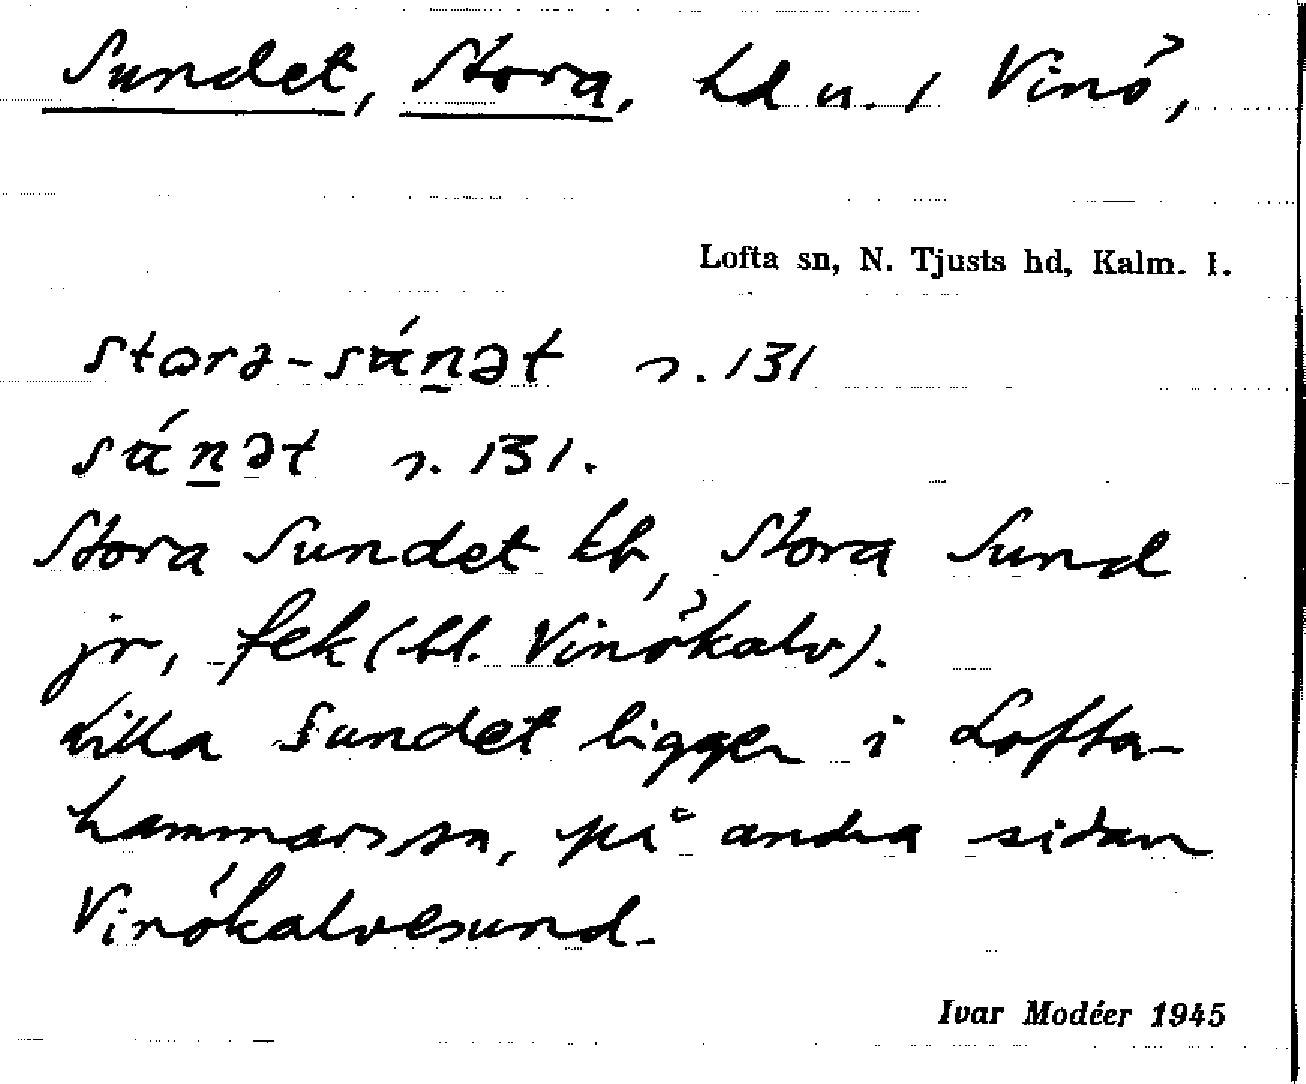 Sundet, Stora, hd u. 1 Vinö,
Lofta sn, N. Tjusts hd, Kalm. l.
storə-sún̲ət s. 131
sún̲ət s. 131.
Stora Sundet kb, Stora Sund
jr, fek (bl. Vinökalv).
Lilla Sundet ligger i Lofta-
hammars sn, på andra sidan
Vinökalvesund.
Ivar Modéer 1945